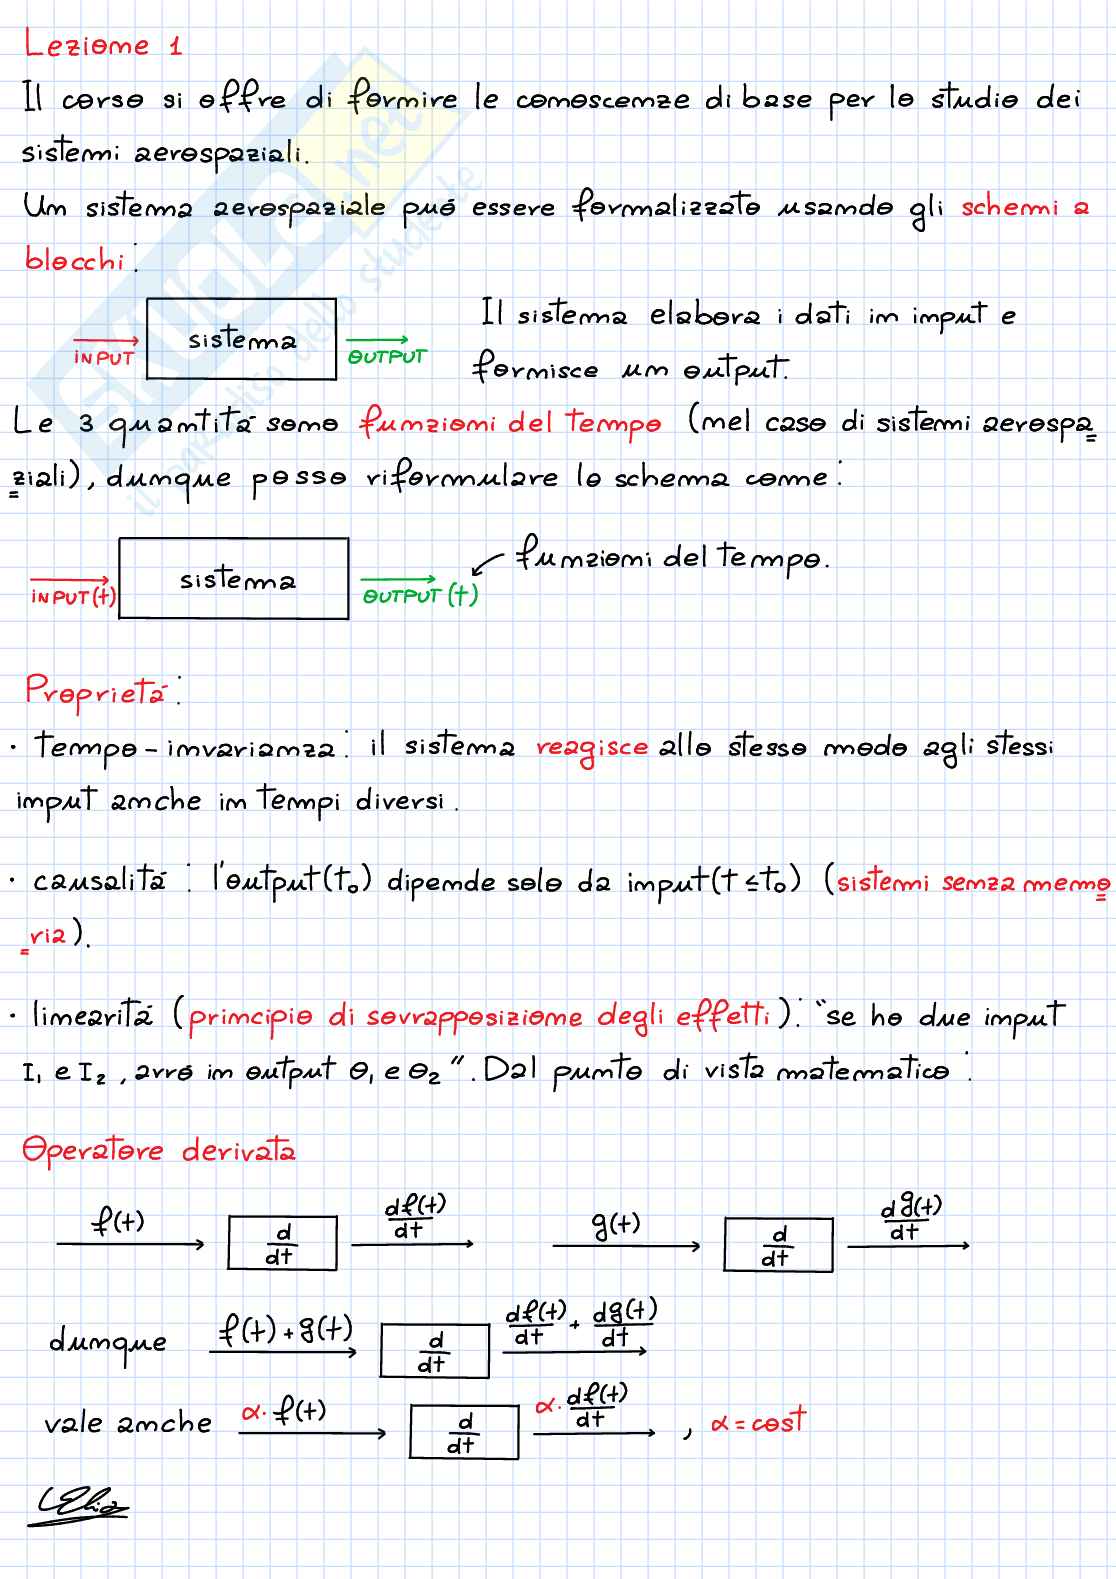 Lezione 1
Il corso si offre di fornire le conoscenze di base per lo studio dei
sistemi aerospaziali.
Un sistema aerospaziale puó essere formalizzato usando gli schemi a
blocchi:
sistema
INPUT
OUTPUT
Il sistema elabora i dati in input e
fornisce un output.
Le 3 quantitá sono funzioni del tempo (nel caso di sistemi aerospa
ziali), dunque posso riformulare lo schema come:
sistema
INPUT(t)
OUTPUT(t)
funzioni del tempo.
Proprietá:
· tempo-invarianza: il sistema reagisce allo stesso modo agli stessi
input anche in tempi diversi.
· causalitá: l'output(t₀) dipende solo da input(t≤t₀) (sistemi senza memo
ria).
· linearitá (principio di sovrapposizione degli effetti): "se ho due input
I₁ e I₂, avró in output O₁ e O₂". Dal punto di vista matematico:
Operatore derivata
f(t) d/dt df(t)/dt g(t) d/dt dg(t)/dt
dunque f(t)+g(t) d/dt df(t)/dt + dg(t)/dt
vale anche α·f(t) d/dt α·df(t)/dt , α=cost
SKUOLA.net
il paradiso dello studente